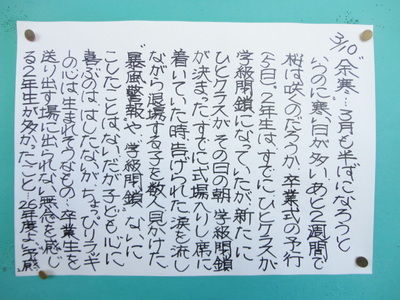 3/10 "余寒…3月も半ばになろうと
いうのに寒い日が多い。あと2週間で
桜は咲くのだろうか。卒業式の予行
(今日)。2年生は、すでにひとクラスが
学級閉鎖になっていたが、新たに
ひとクラスが、その日の朝、学級閉鎖
が決まった。すでに式場へ入りし席に
着いていた時、告げられた。涙を流し
ながら退場する子を数人見かけた。
"暴風警報や"学級閉鎖"ないに
こしたことはない。だが子ども心に
喜ぶのははしたないが、ちょっぴりラッキ
ーの心は生まれそうなもの…卒業生を
送り出す場に出られない無念を感じ
る2年生が多かったこと! 26年度よ予感